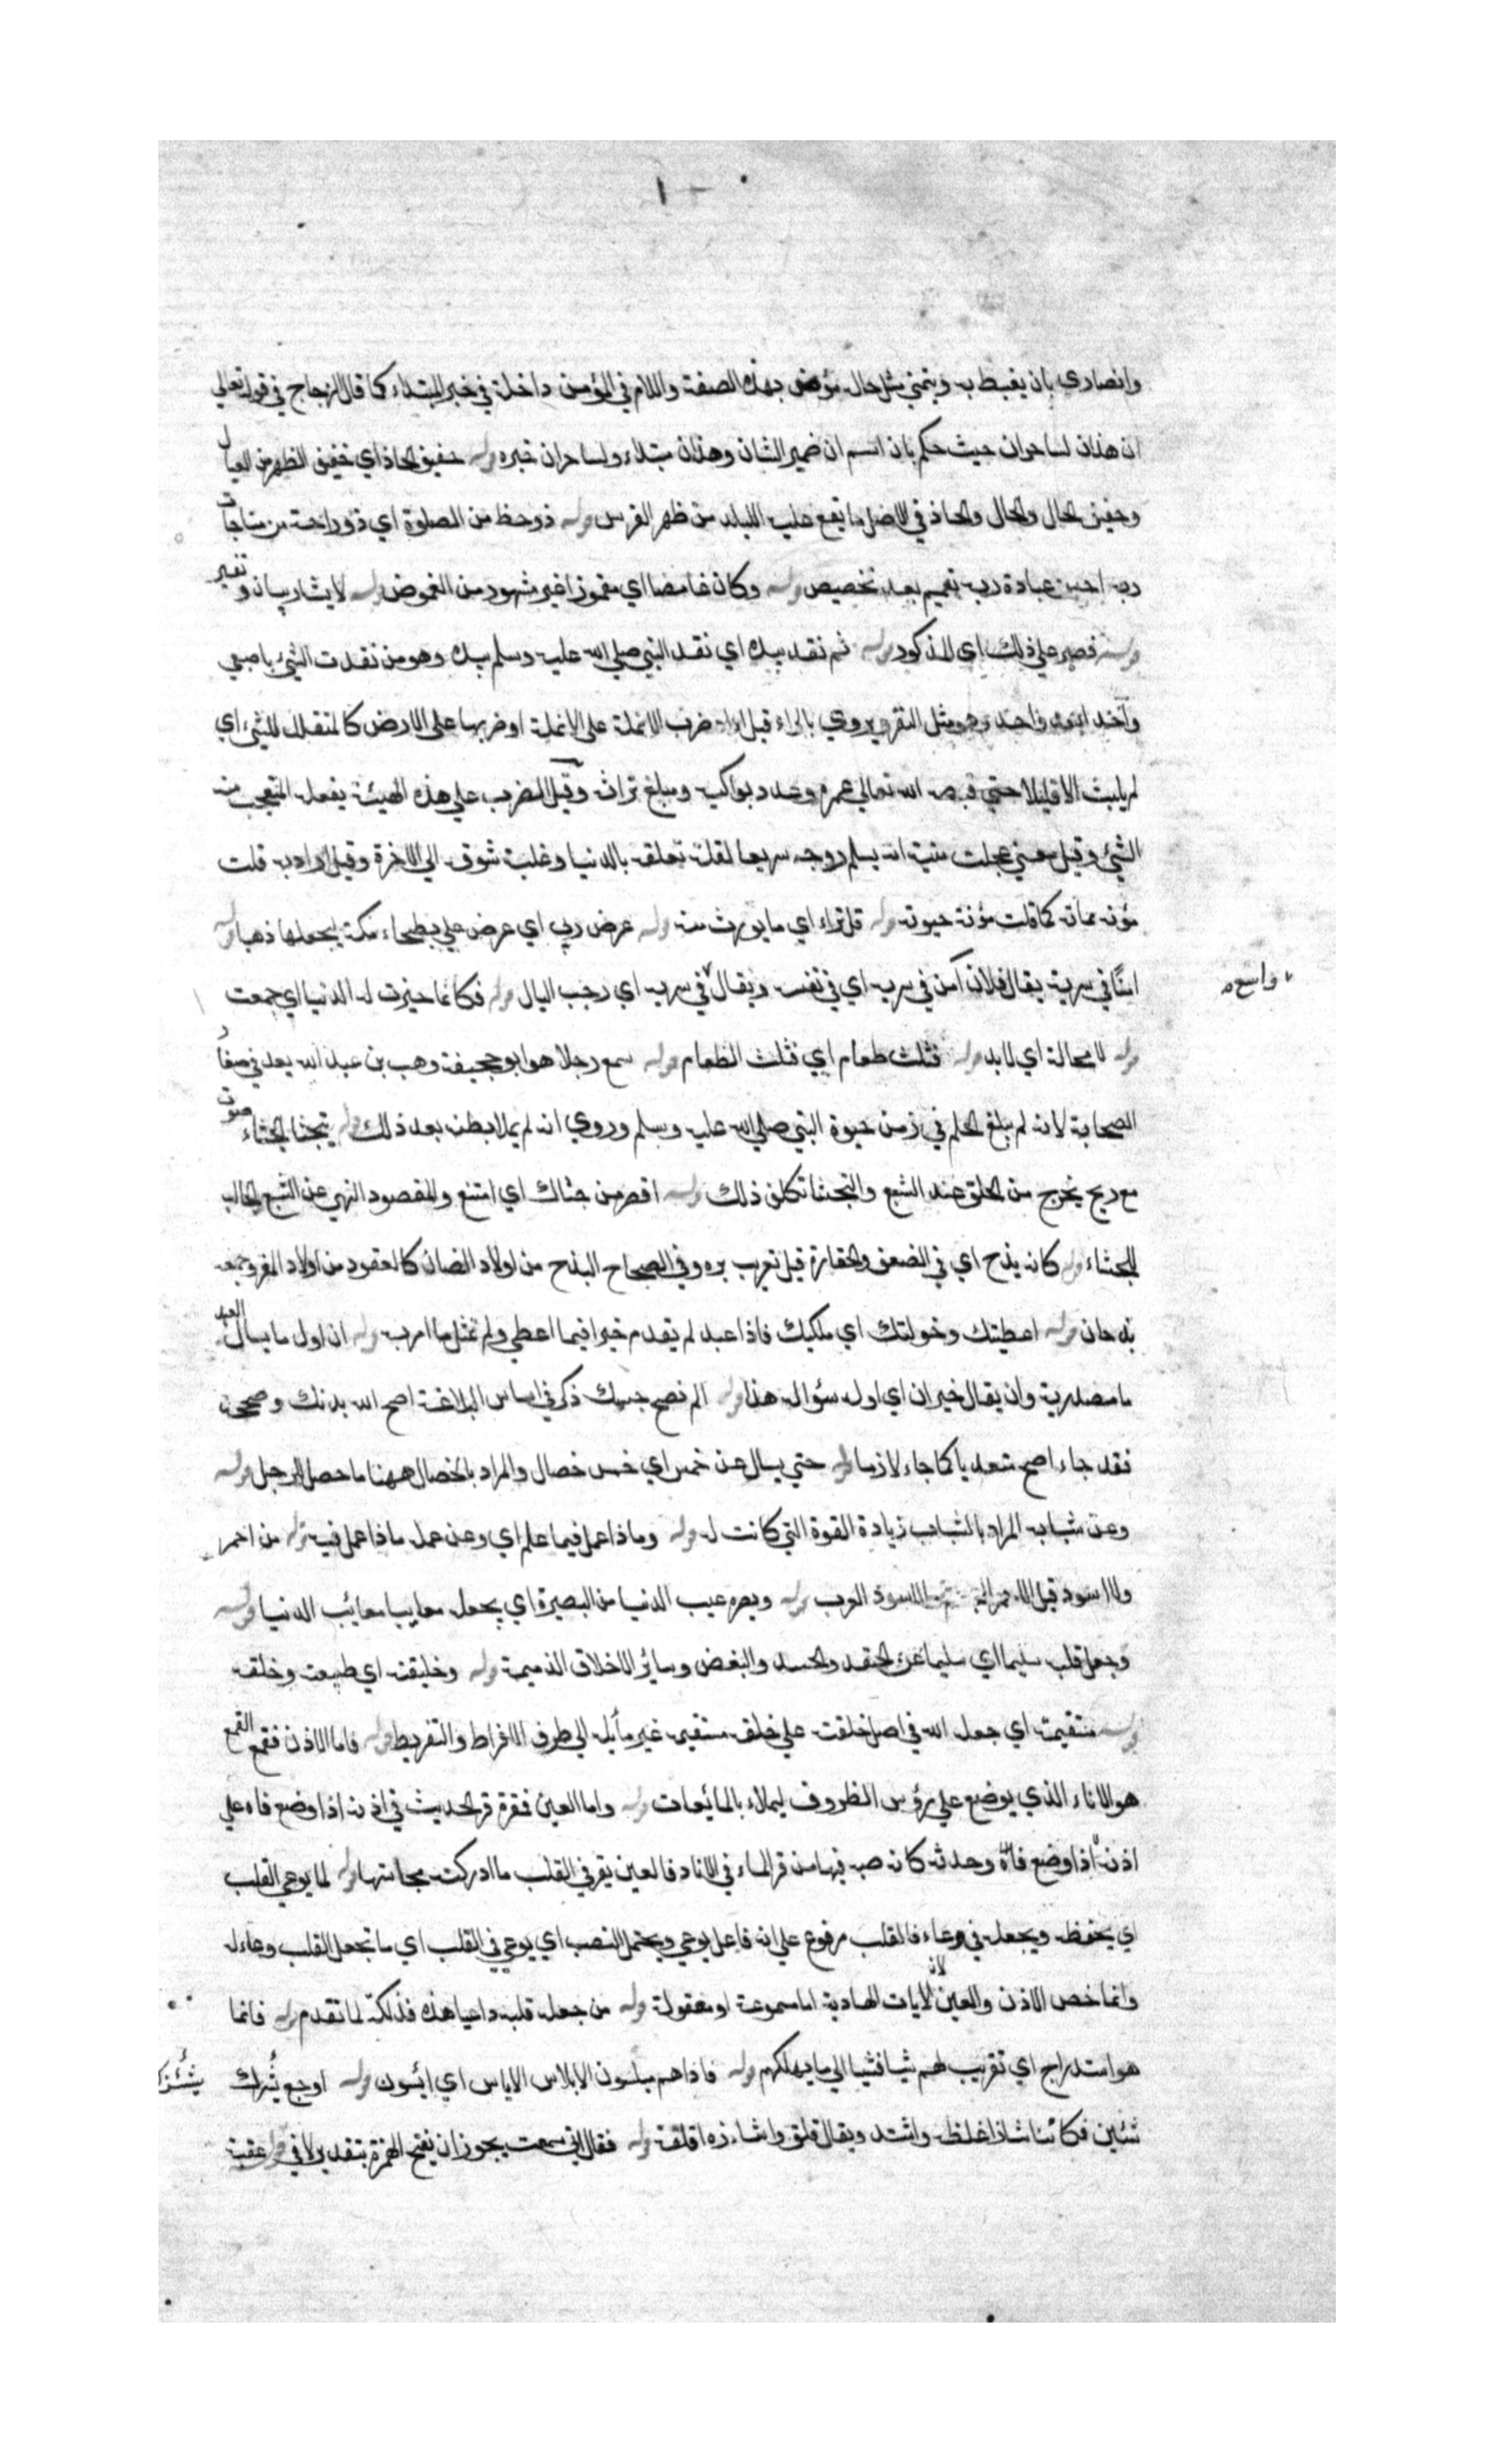 وانصاري بان يغبط به ويتمني مثل حاله مؤمن بهذه الصفة واللام في المؤمن داخلة في خبر المبتداء كما قال الزجاج في قوله تعالي
ان هذان لساحران حيث حكم بان اسم ان ضمير الشان وهذان مبتداء ولساحران خبره قوله خفيف الحاذ اي خفيف الظهر من العيال
وخفيف الحال والحال والحاذ في الاصل ما يقع عليه اللبد من ظهر الفرس قوله ذو حظ من الصلوة اي ذو راحة من مناجات
ربه احسن عبادة ربه تعميم بعد تخصيص قوله وكان غامضا اي مغموزا غير مشهور من الغموض قوله لا يشار بيان وتفسير
قوله فصبر علي ذلك اي المذكور قوله ثم نقد بيده اي نقد النبي صلي الله عليه وسلم بيده وهو من نقدت الشيء باصبعي
واحد بعد واحد وهو مثل النقر ويروي بالراء قيل اراد ضرب الانملة علي الانملة او ضربها علي الارض كالمتقلل للشيء اي
لم يلبث الا قليلا حتي قبض الله تعالي عمره وعدد بواكيه ومبلغ تراثه وقيل الضرب علي هذه الهيئة يفعله المتعجب من
الشيء وقيل معني عجلت منيته انه يسلم روحه سريعا لقلة تعلقه بالدنيا وغلبة شوقه الي الاخرة وقيل اراد به قلت
مؤنة مماته كما قلت مؤنة حيوته قوله قل تراثه اي ما يورث منه قوله عرض ربي اي عرض علي بطحاء مكة ليجعلها ذهبا قوله
امنًا في سربه يقال فلان آمن في سربه اي في نفسه ويقال في سربه اي رحب البال قوله فكانما حيزت له الدنيا اي جمعت
واسع
قوله لا محالة اي لابد قوله فثلث طعام اي فثلث الطعام قوله سمع رجلا هو ابو جحيفة وهب بن عبد الله يعد في صغار
الصحابة لانه لم يبلغ الحلم في زمن حيوة النبي صلي الله عليه وسلم وروي انه لم يملا بطنه بعد ذلك قوله يتجشا الجشاء صوت
مع ريح يخرج من الحلق عند الشبع والتجشا تكلف ذلك قوله اقصر من جشاك اي امتنع والمقصود النهي عن الشبع الجالب
للجشاء قوله كانه بذج اي في الضعف والحقارة قيل تعريب بره وفي الصحاح البذج من اولاد الضان كالعتود من اولاد المعز وجمعه
بذجان قوله اعطيتك وخولتك اي ملكتك فاذا عبد لم يقدم خيرا فيما اعطي ولم تمثل ما امر به قوله ان اول ما يسال العبد
ما مصدرية وان يقال خبر ان اي اول سؤال هذا قوله الم نصح جسمك ذكر في اساس البلاغة اصح الله بدنك وصححه
فقد جاء اصح متعديا كما جاء لازما قوله حتي يسال عن خمس اي خمس خصال والمراد بالخصال ههنا ما حصل الرجل قوله
وعن شبابه المراد بالشباب زيادة القوة التي كانت له قوله وماذا عمل فيما علم اي وعن عمله ماذا عمل فيه قوله من احمر
ولا اسود قيل الاحمر العجم والاسود العرب قوله وبصره عيب الدنيا من البصيرة اي يجعله معاينا معائب الدنيا قوله
وجعل قلبه سليما اي سليما عن الحقد والحسد والبغض وسائر الاخلاق الذميمة قوله وخليقته اي طبيعته وخلقه
قوله مستقيمة اي جعل الله في اصل خلقته علي خلقه مستقيمة غير مأيلة الي طرفي الافراط والتفريط قوله فاما الاذن فقمع القمع
هو الاناء الذي يوضع علي رؤس الظروف ليملاء بالمائعات قوله واما العين فمقرة قر الحديث في اذنه اذا وضع فاه علي
اذنه اذا وضع فاه وحدثه كانه صبه فيها من قر الماء في الاناء فالعين يقر في القلب ما ادركته مجاستها قوله لما يوعي القلب
اي يحفظه ويجعله في وعاء فالقلب مرفوع علي انه فاعل يوعي ويحتمل النصب اي يوعي في القلب اي ما تجعل القلب وعاء له
وانما خص الاذن والعين لان الايات الهادية اما مسموعة او معقولة قوله من جعل قلبه داعيا هذه فذلكة لما تقدم قوله فانما
هو استدراج اي تقريب لهم شيا فشيا الي ما يهلكهم قوله فاذا هم مبلسون الابلاس الاياس اي ايسون قوله اوجع يُشرك
يشئز
شئين فكاننا شاذا غلظ واشتد ويقال قلق واشاءزه اقلقه قوله فقال اني سمعت يجوز ان يفتح الهمزة بتقدير لا في قوله عقبة